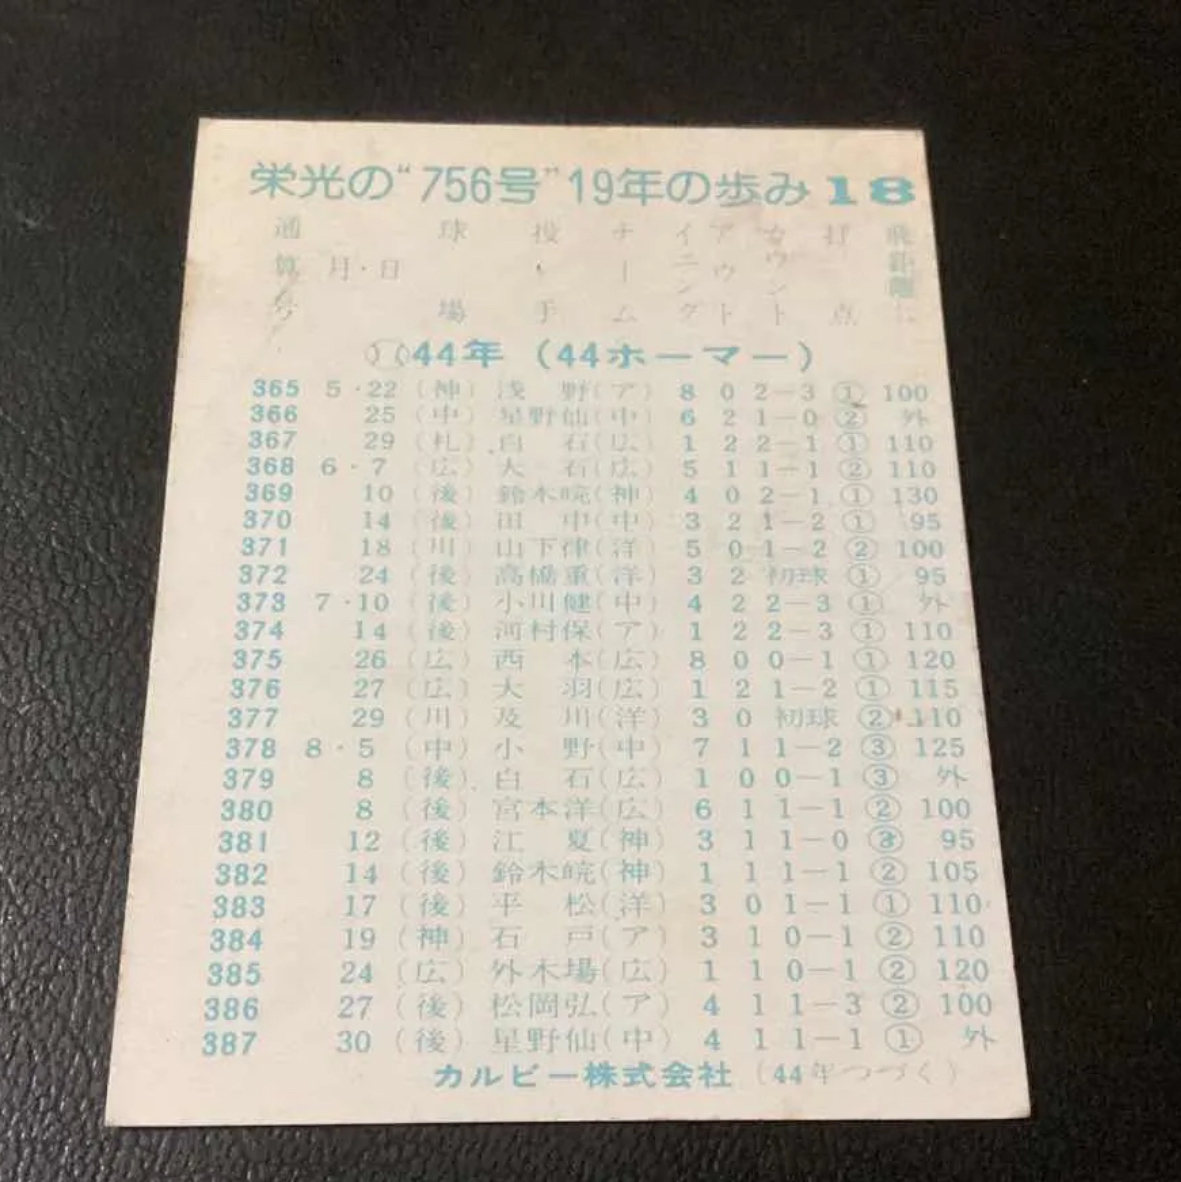 栄光の“756号”19年の歩み 18
通算号 月・日 球場 投手 チーム イニング アウト カウント 打点 飛距離
44年 (44ホーマー)
365 5・22 (神) 浅野(ア) 8 0 2−3 ① 100
366 25 (中) 星野仙(中) 6 2 1−0 ② 外
367 29 (札) 白石(広) 1 2 2−1 ① 110
368 6・7 (広) 大石(広) 5 1 1−1 ② 110
369 10 (後) 鈴木皖(神) 4 0 2−1 ① 130
370 14 (後) 田中(中) 3 2 1−2 ① 95
371 18 (川) 山下律(洋) 5 0 1−2 ② 100
372 24 (後) 高橋重(洋) 3 2 初球 ① 95
373 7・10 (後) 小川健(中) 4 2 2−3 ① 外
374 14 (後) 河村保(ア) 1 2 2−3 ① 110
375 26 (広) 西本(広) 8 0 0−1 ① 120
376 27 (広) 大羽(広) 1 2 1−2 ① 115
377 29 (川) 及川(洋) 3 0 初球 ② 110
378 8・5 (中) 小野(中) 7 1 1−2 ③ 125
379 8 (後) 白石(広) 1 0 0−1 ③ 外
380 8 (後) 宮本洋(広) 6 1 1−1 ② 100
381 12 (後) 江夏(神) 3 1 1−0 ③ 95
382 14 (後) 鈴木皖(神) 1 1 1−1 ② 105
383 17 (後) 平松(洋) 3 0 1−1 ① 110
384 19 (神) 石戸(ア) 3 1 0−1 ② 110
385 24 (広) 外木場(広) 1 1 0−1 ② 120
386 27 (後) 松岡弘(ア) 4 1 1−3 ② 100
387 30 (後) 星野仙(中) 4 1 1−1 ① 外
カルビー株式会社 (44年つづく)